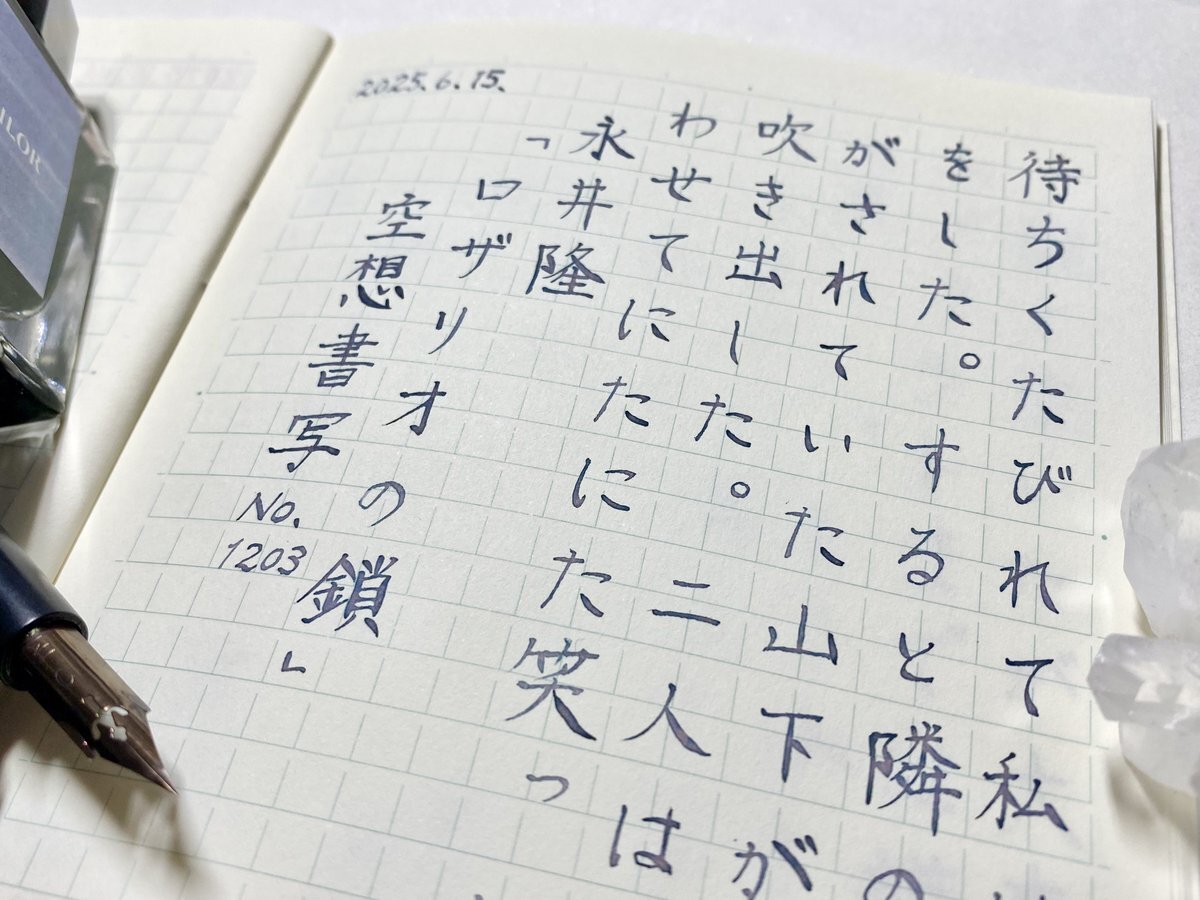 待ちくたびれて私
をした。すると隣の
がされていた山下が
吹き出した。二人は
わせてにたにた笑っ
永井隆
「ロザリオの鎖」
空想書写 No. 1203
2025.6.15.
ILOR